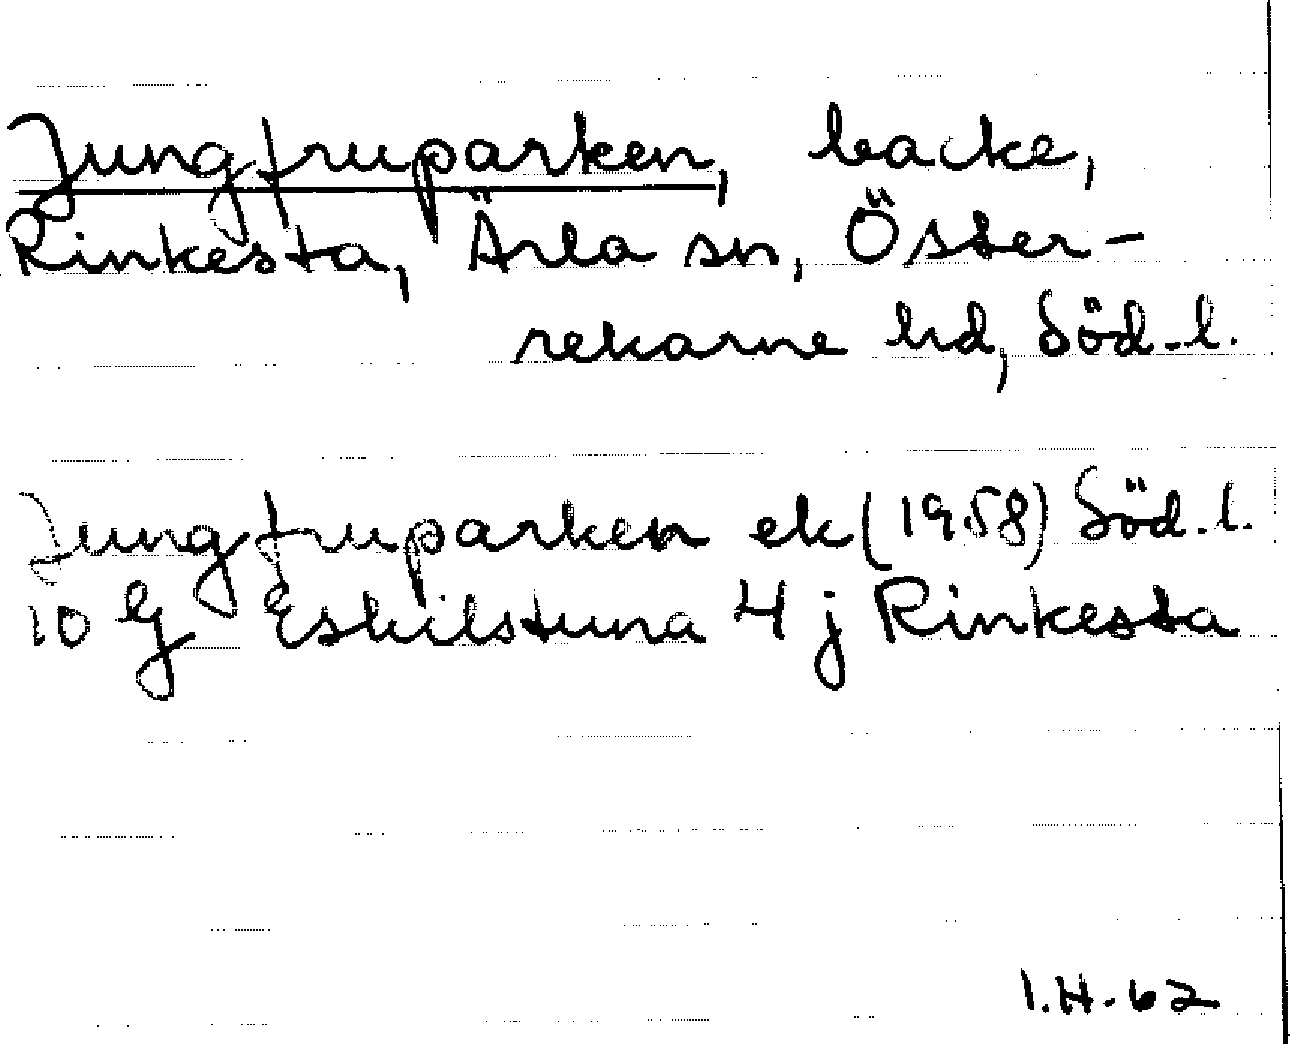 Jungfruparken, backe,
Rinkesta, Ärla sn, Öster-
rekarne hd, Söd.l.
Jungfruparken ek (1958) Söd.l.
10 G Eskilstuna 4 j Rinkesta
I.H.62